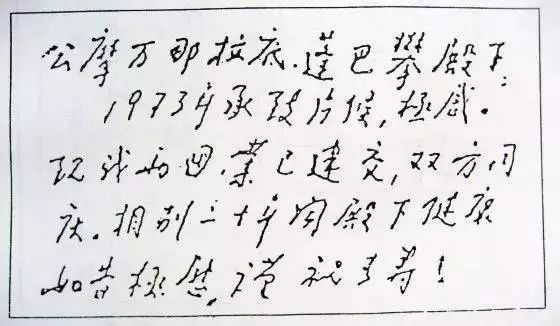 公摩万那拉底·蓬巴攀殿下：
1973年承致片候，極感。
现我两囯业已建交，双方同
庆。相别二十年闻殿下健康
如昔極慰，谨祝多寿！